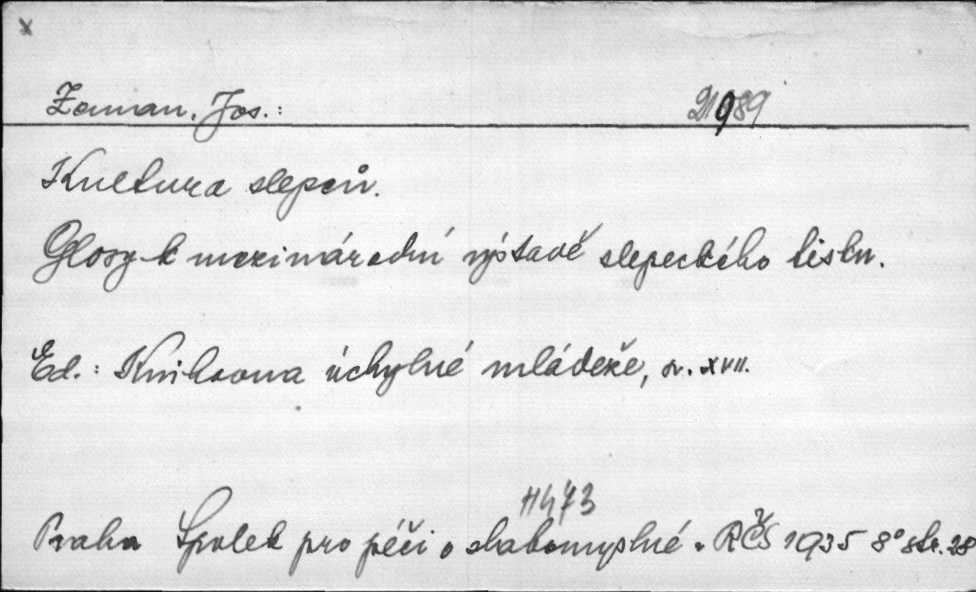 x
Zeman, Jos.: D1989
Kultura slepců.
Glosy k mezinárodní výstavě slepeckého tisku.
Ed.: Knihovna úchylné mládeže, sv. XVII.
H473
Praha Spolek pro péči o slabomyslné v RČS 1935 8° str. 28